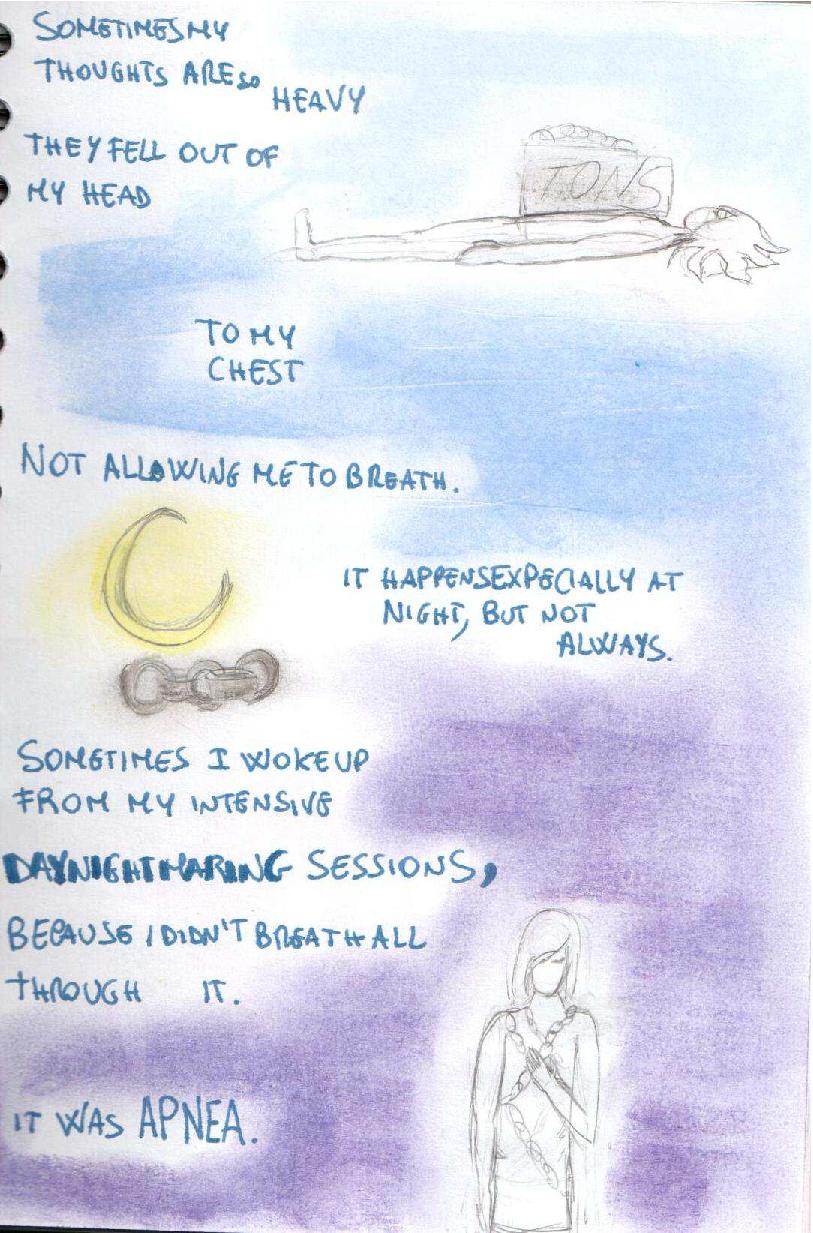 SOMETIMES MY
THOUGHTS ARE SO
HEAVY
THEY FELL OUT OF
MY HEAD
TONS
TO MY
CHEST
NOT ALLOWING ME TO BREATH.
IT HAPPENS EXPECIALLY AT
NIGHT, BUT NOT
ALWAYS.
SOMETIMES I WOKE UP
FROM MY INTENSIVE
DAYNIGHTMARING SESSIONS,
BECAUSE I DIDN'T BREATH ALL
THROUGH IT.
IT WAS APNEA.